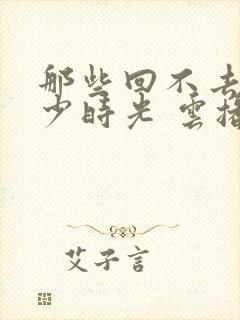 那些回不去
少時光 雲
艾子言